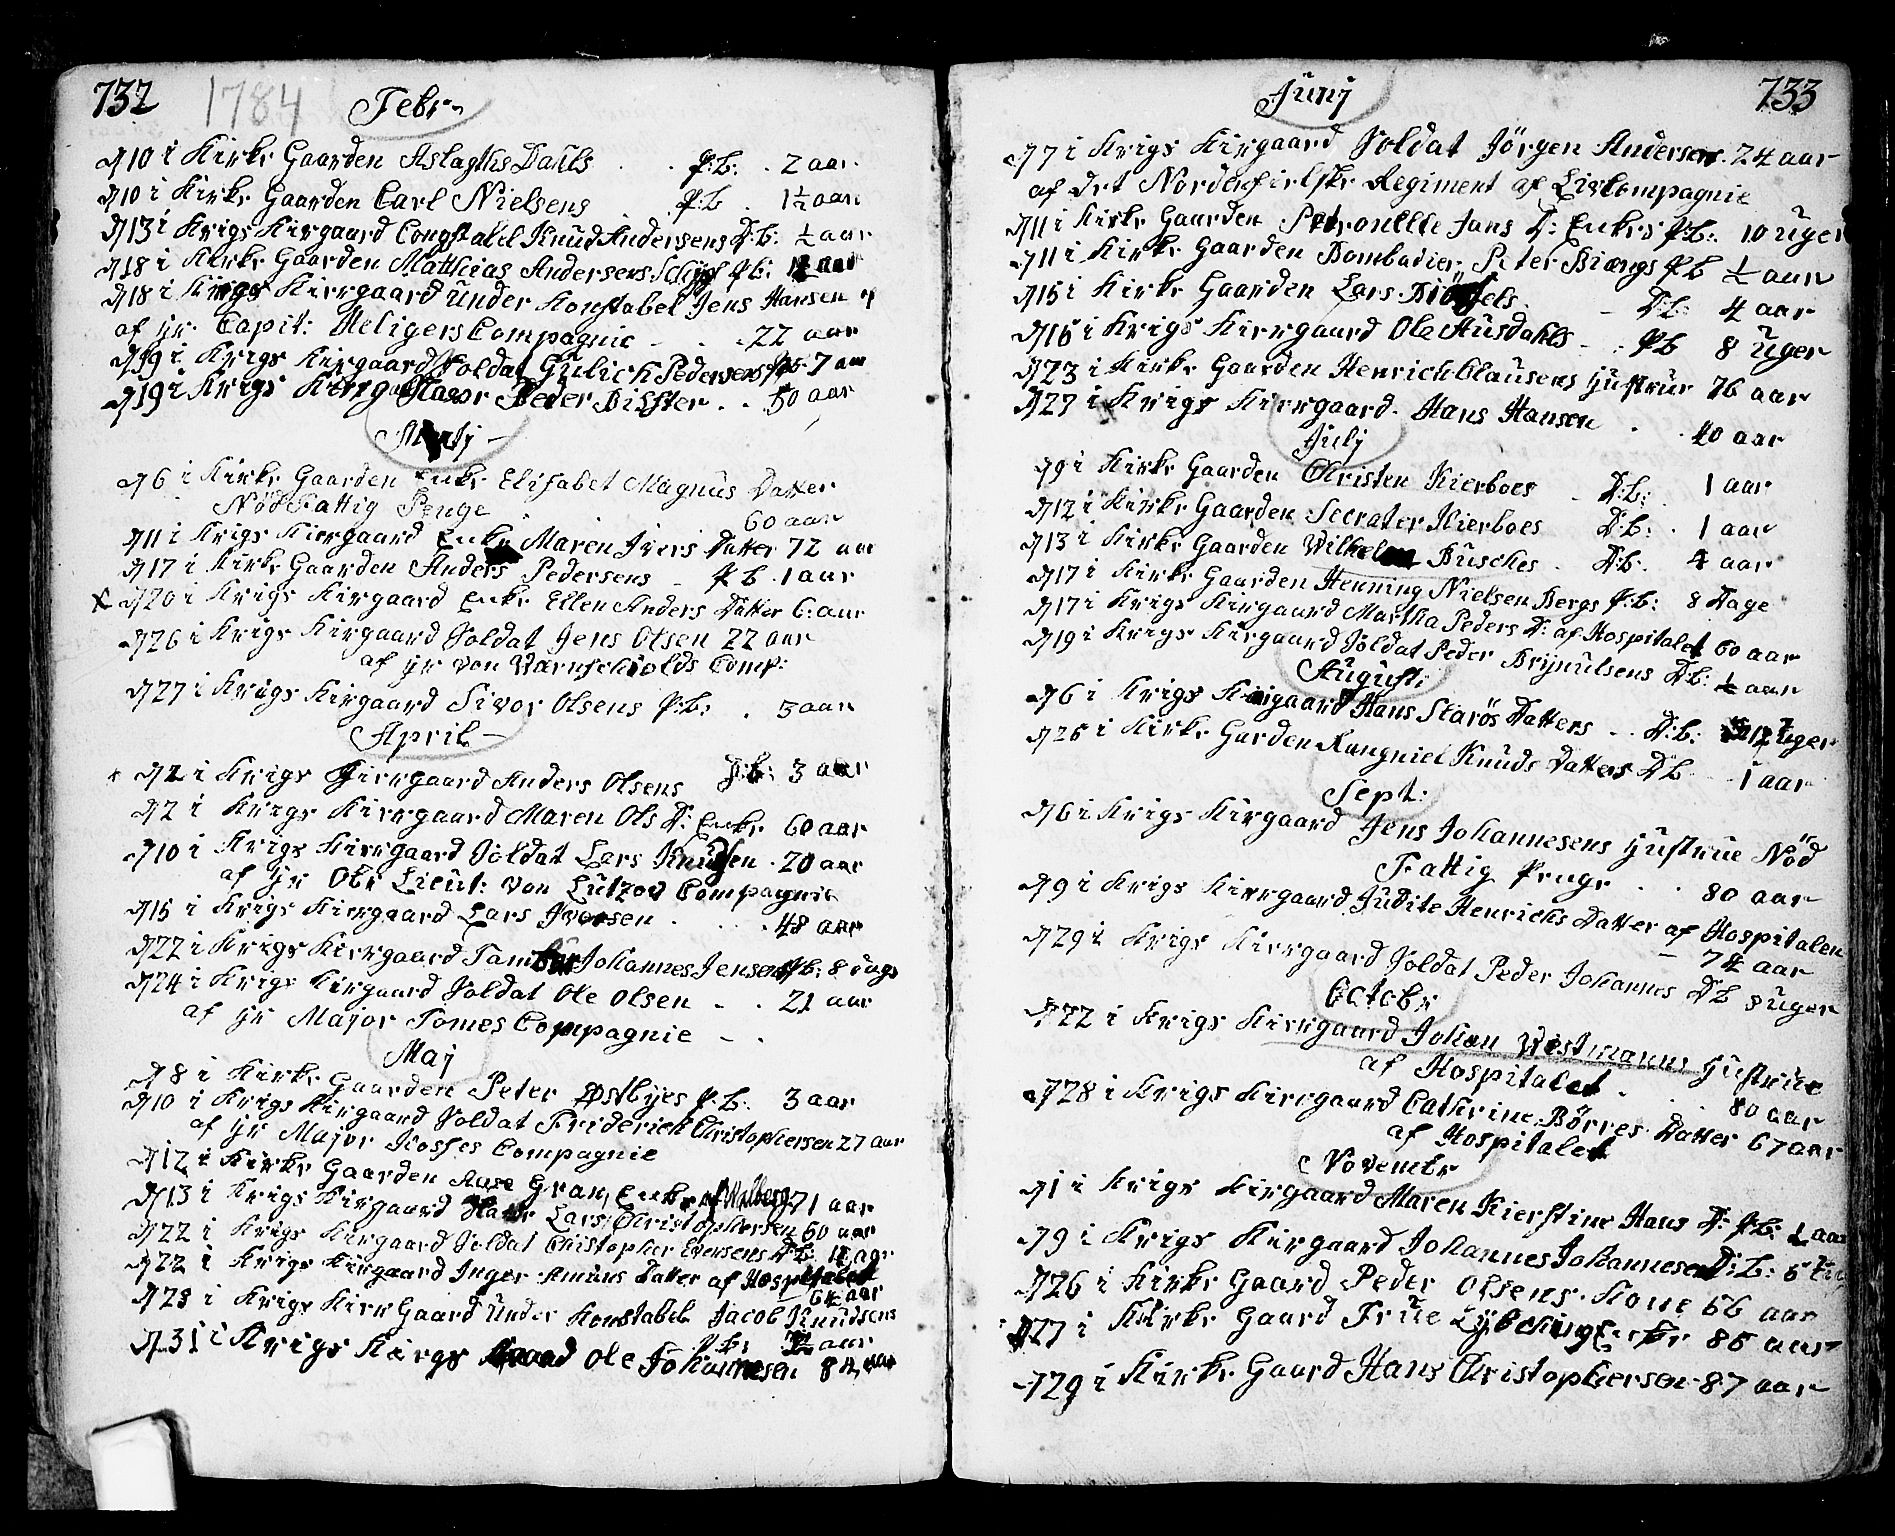 732 1784 Febr
d 10 i Kirke Gaarden Aslagths Dauls P:b: 2 aar
d 10 i Kirke Gaarden Carl Nielsens P:b 1½ aar
d 13 i Krigs Kirgaard Constabel Knud Andersens D:b: ½ aar
d 18 i Kirke Gaarden Matthias Andersens P:b: aar
d 18 i Krigs Kirrgaard Under Konstabel Jens Hansen
af Hr Capit: Heligers Compagnie 22 aar
d 19 i Krigs Kirgaard Soldat Gulich Pedersens P:b 7 aar
d 19 i Krigs Peder 50 aar
Martj
d 6 i Kirke Gaarden Enke Elisabet Magnus Datter
Nød Fattig Penge 60 aar
d 11 i Krigs Kirrgaard Enke Maren Ivers Datter 72 aar
d 17 i Kirke Gaarden Anders Pedersens P b 1 aar
d 20 i Krigs Kirgaard Enke Ellen Anders Datter 6: aar
d 26 i Krigs Kirgaard Soldat Jens Olsen 22 aar
af Hr von Warnschiolds Comp:
d 27 i Krigs Kirgaard Sivor Olsens P:b: 3 aar
April
d 2 i Krigs Kirrgaard Anders Olsens D:b: 3 aar
d 2 i Krigs Kirrgaard Maren Ols D: Enke 60 aar
d 10 i Krigs Kirrgaard Soldat Lars Knudsen 20 aar
af Hr Obr Lieut: von Lutzov Compagnie
d 15 i Krigs Kirrgaard Lars Iversen 48 aar
d 22 i Krigs Kirrgaard Tambur Johannes Jensens P:b: 8 dage
d 24 i Krigs Kirgaard Soldat Ole Olsen 21 aar
af Hr Major Tomes Compagnie
Maj
d 8 i Kirke Gaarden Peter Østbyes P:b: 3 aar
d 10 i Krigs Kirgaard Soldat Friderich Christophersen 27 aar
af Hr Major Kosses Compagnie
d 12 i Kirke Gaarden Anne Gran, Enke af Walberg 71 aar
d 13 i Krigs Kirgaard Lars Christophersen 60 aar
d 22 i Krigs Kirgaard Soldat Christopher Evensens D:b: aar
d 22 i Krigs Kirgaard Inger Amuns Datter af Hospitalet
64 aar
d 28 i Krigs Kirr Gaard Under Konstabel Jacob Knudsens
P:b: aar
d 31 i Krigs Kirgs Gaard Ole Johannesen 84 aar
Junj 733
d 7 i Krigs Kirgaard Soldat Jörgen Andersen 24 aar
af Det Nordenfielske Regiment af Livkompagnie
d 11 i Kirke Gaarden Petronelle Jans D: Enkes P:b: 10 Uger
d 11 i Kirke Gaarden Bombadier Peter Biængs P b ½ aar
d 15 i Kirke Gaarden Lars D:b: 4 aar
d 16 i Krigs Kirrgaard Ole Ausdahls P b 8 Uger
d 23 i Kirke Gaarden Henrich Clausens Hustrue 76 aar
d 27 i Krigs Kirrgaard Hans Hansen 40 aar
Julj
d 9 i Kirke Gaarden Christen Kierboes D:b: 1 aar
d 12 i Kirke Gaarden Secrater Kierboes D:b: 1 aar
d 13 i Kirke Gaarden Wilhelm Busches D:b: 4 aar
d 17 i Kirke Gaarden Henning Nielsen Bergs P:b: 8 Dage
d 17 i Krigs Kirgaard Martha Peders D: af Hospitalet 60 aar
d 19 i Krigs Kirgaard Soldat Peder Brynulsens D:b: ½ aar
August
d 6 i Krigs Kirgaard Hans Skarös Datters D:b: 12 Uger
d 26 i Kirke Garden Rangniel Knuds Datters D b 1 aar
Sept:
d 6 i Krigs Kirgaard Jens Johannesens Hustrue Nöd
Fattig Penge 80 aar
d 9 i Krigs Kirrgaard Judite Henrichs Datter af Hospitalen
74 aar
d 29 i Krigs Kirrgaard Soldat Peder Johannes D b 8 Uger
Octobr
d 22 i Krigs Kirrgaard Johan Westmanns Hustrue
af Hospitalet 80 aar
d 28 i Krigs Kirrgaard Cathrine Börres Datter 67 aar
af Hospitalet
Novembr
d 1 i Krigs Kirgaard Maren Kierstine Hans D: P:b: ½ aar
d 9 i Krigs Kirgaard Johannes Johannesen D:b:
d 26 i Kirke Gaard Peder Olsens Kone 66 aar
d 27 i Kirke Gaard Frue Enke 86 aar
d 29 i Kirke Gaard Hans Christophersen 87 aar